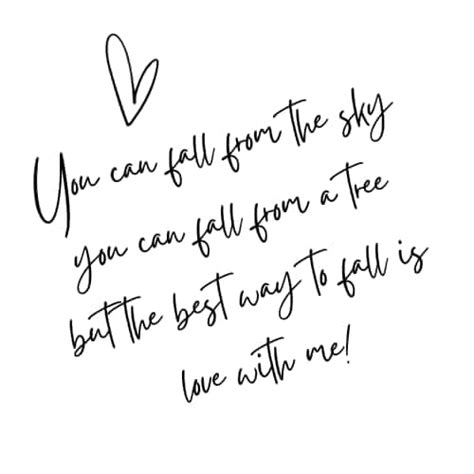 You can fall from the sky
you can fall from a tree
but the best way to fall is
love with me!